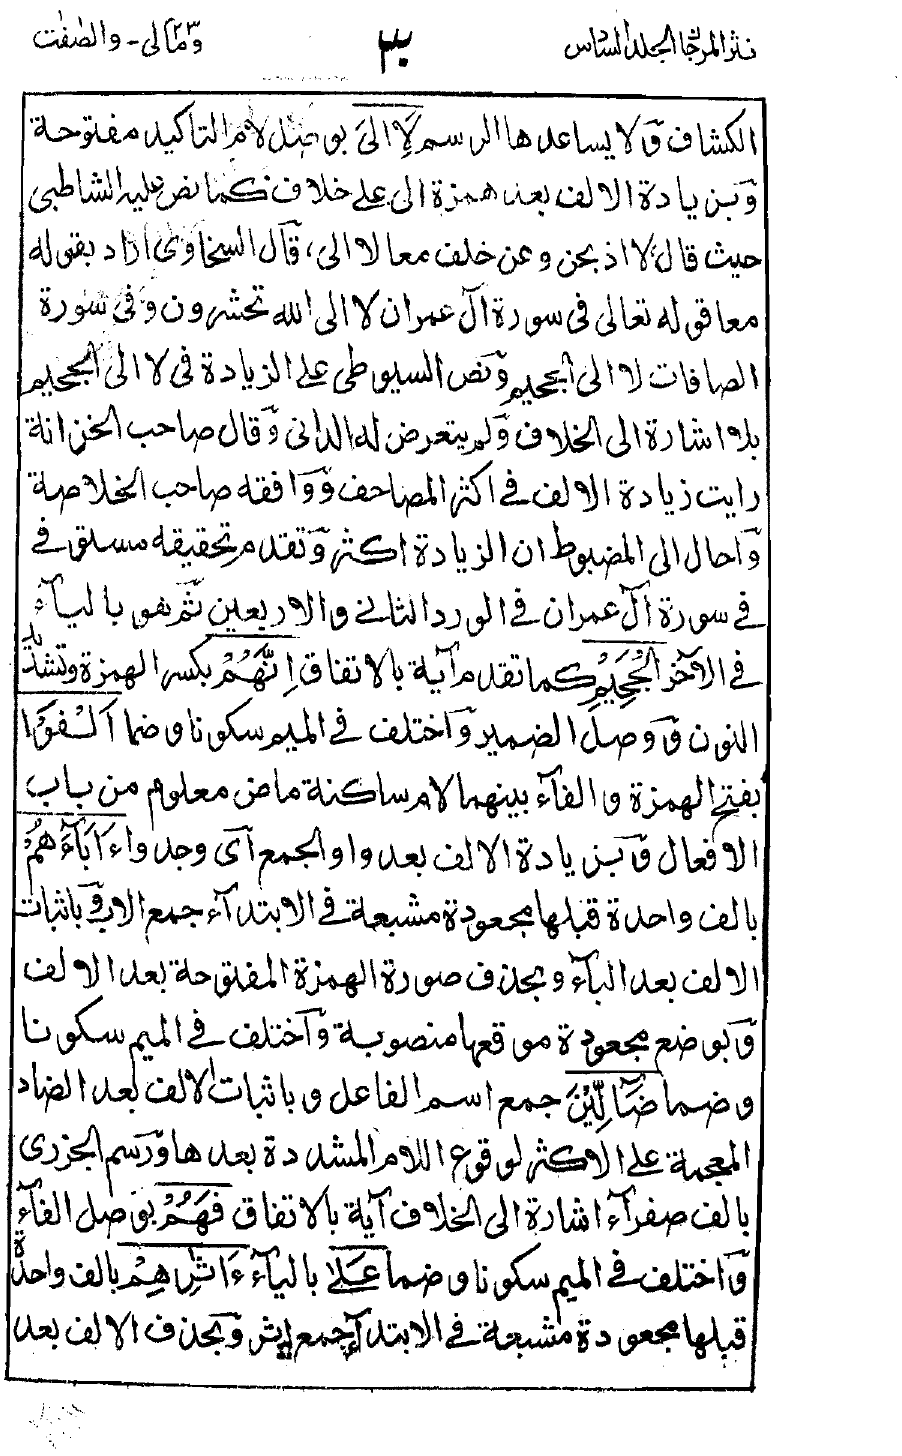 نثر المرجان المجلد السادس
٣٠
ومالى ٢٣ - والصّٰفّٰت
الكشاف وَلا يساعدها الرسم لَا۬الىَ بوصل لام التاكيد مفتوحة
وَبزيادة الالف بعد همزة الى على خلاف كما نص عليه الشاطبى
حيث قال لا اذبحن وعن خلف معا لا الى، قَال السخاوى اراد بقوله
معا قوله تعالى فى سورة آل عمران لا الى الله تحشرون وَفى سورة
الصافات لا الى الجحيم وَنص السيوطى على الزيادة فى لا الى الجحيم
بلا اشارة الى الخلاف وَلم يتعرض له الدانى وَقال صاحب الخزانة
رايت زيادة الالف فے اكثر المصاحف وَوَافقه صاحب الخلاصة
وَاحال الى المضبوط ان الزيادة اكثر وَتقدم تحقيقه مستوفى
فے سورة آل عمران فے الورد الثانے والاربعين ثم هو بالياۤء
فے الآخر الْجَحِيْمِ كما تقدم آية بالاتفاق اِنَّهُمْ بكسر الهمزة وتشديد
النون وَوصل الضمير وَاختلف فے الميم سكونا وضما اَلْفَوْا
بفتح الهمزة والفاۤء بينهما لام ساكنة ماض معلوم من باب
الافعال وَبزيادة الالف بعد واو الجمع آى وجدواءَابَاۤءَهُمْ
بالف واحدة قبلها مجعودة مشبعة فے الابتداۤء جمع الاب وَباثبات
الالف بعد الباۤء وبحذف صورة الهمزة المفتوحة بعد الالف
وَبوضع مجعودة موقعها منصوبة وَاختلف فے الميم سكونا
وضما ضَاۤلِّيْنَ جمع اسم الفاعل وباثبات الالف بعد الضاد
المعجمة على الاكثر لوقوع اللام المشددة بعدها وَرسم الجزرى
بالف صفراۤء اشارة الى الخلاف آية بالاتفاق فَهُمْ بوصل الفاۤء
وَاختلف فے الميم سكونا وضما عَلٰى بالياۤء ءَاثٰرِهِمْ بالف واحدة
قبلها مجعودة مشبعة فے الابتداۤء جمع اثر وَبحذف الالف بعد